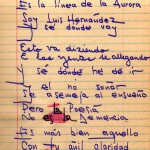 Es la línea de la Aurora
Soy Luis Hernández
se donde voy
Esto va diziendo
E los yentes se allegando
y se donde he de ir
el no sonar
Se asemeja al ensueño
Pero la Poesía
No es la Demencia
Es más bien aquello
Con tu anil claridad